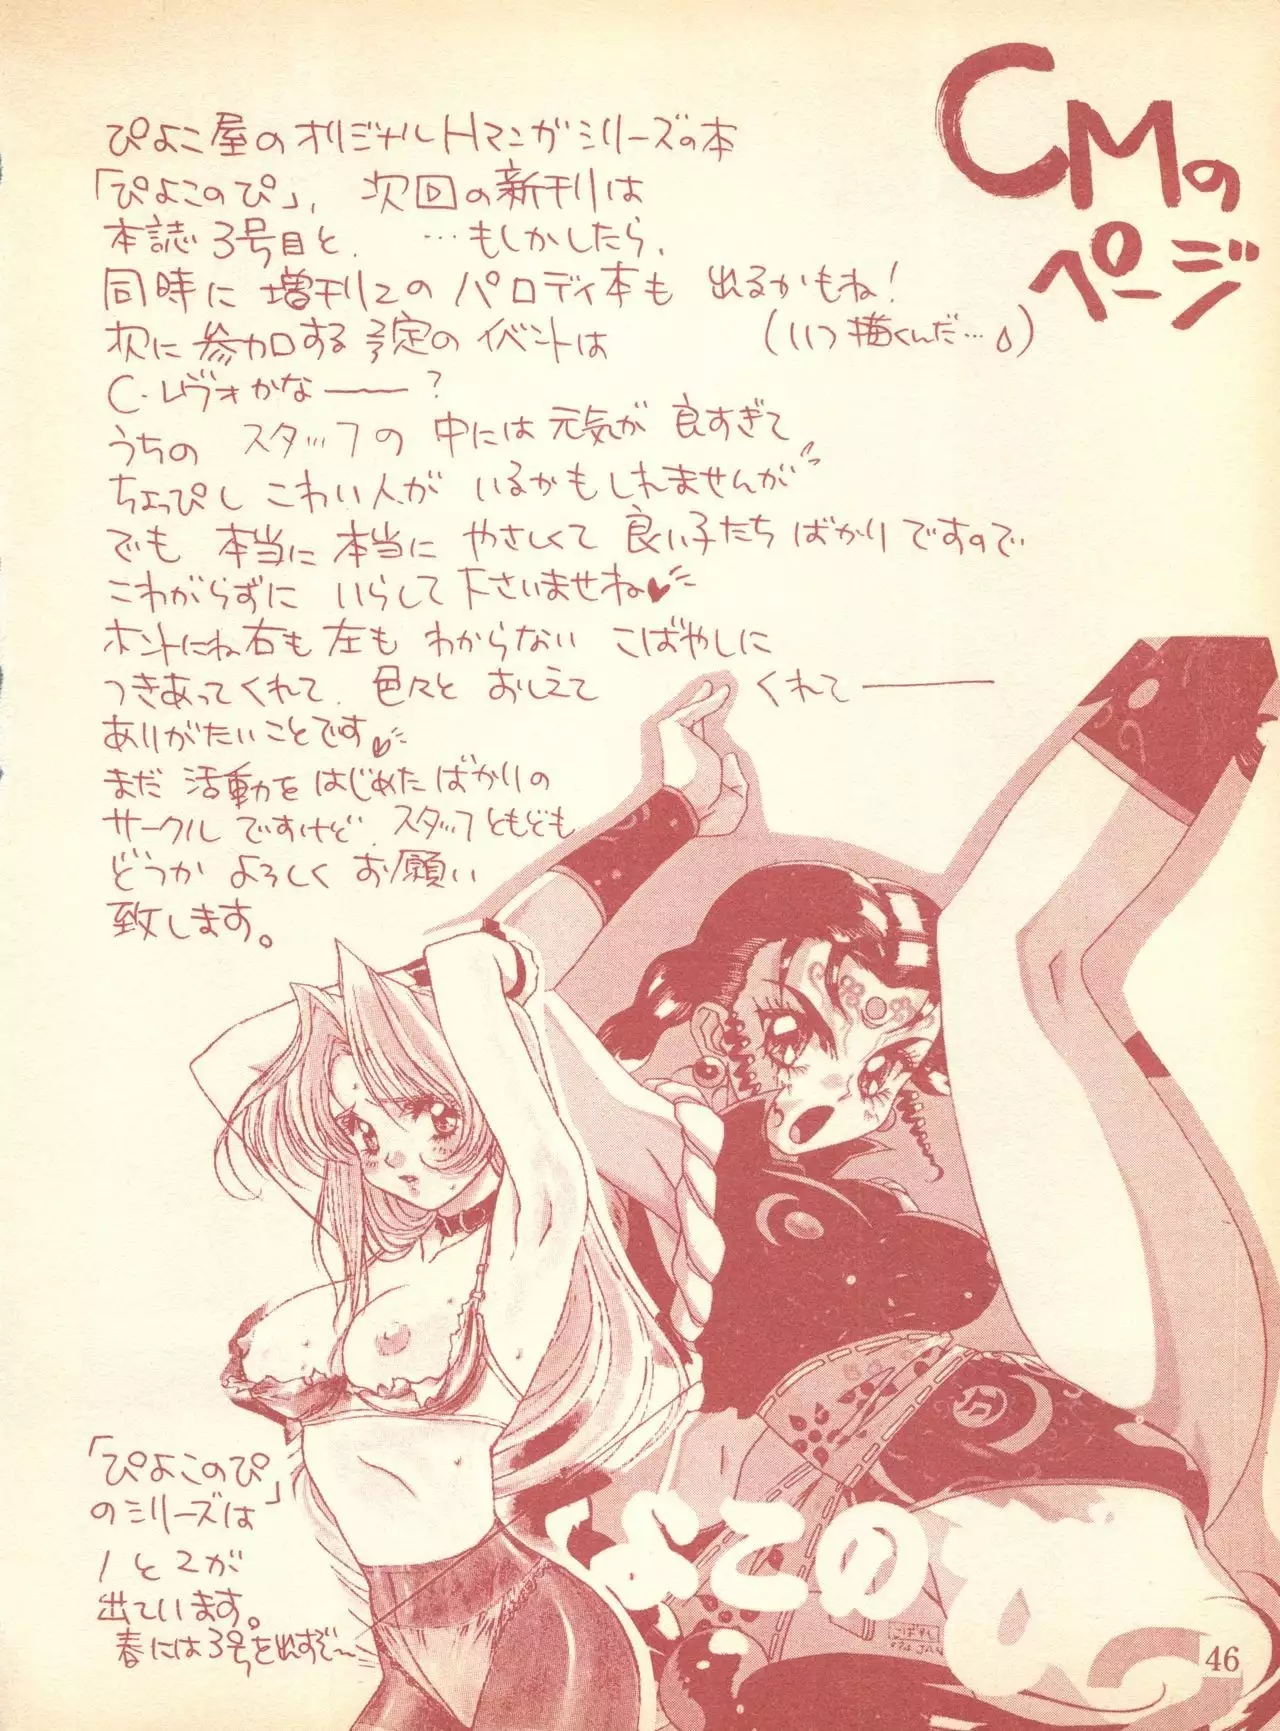 CMの
ページ
ぴよこ屋のオリジナルHマンガシリーズの本
「ぴよこのぴ」、次回の新刊は
本誌3号目と、…もしかしたら、
同時に増刊2のパロディ本も出るかもね!
(いつ描くんだ…)
次に参加する予定のイベントは
C・レヴォかなー?
うちのスタッフの中には元気が良すぎて
ちょっぴしこわい人がいるかもしれませんが
でも本当に本当にやさしくて良い子たちばかりですので
こわがらずにいらして下さいませね♥
ホントにね右も左もわからないこばやしに
つきあってくれて、色々とおしえてくれて――
ありがたいことです♥
まだ活動をはじめたばかりの
サークルですけど、スタッフともども
どうかよろしくお願い
致します。
「ぴよこのぴ」
のシリーズは
1と2が
出ています。
春には3号を出すぞ〜
よこの
こばやし
46